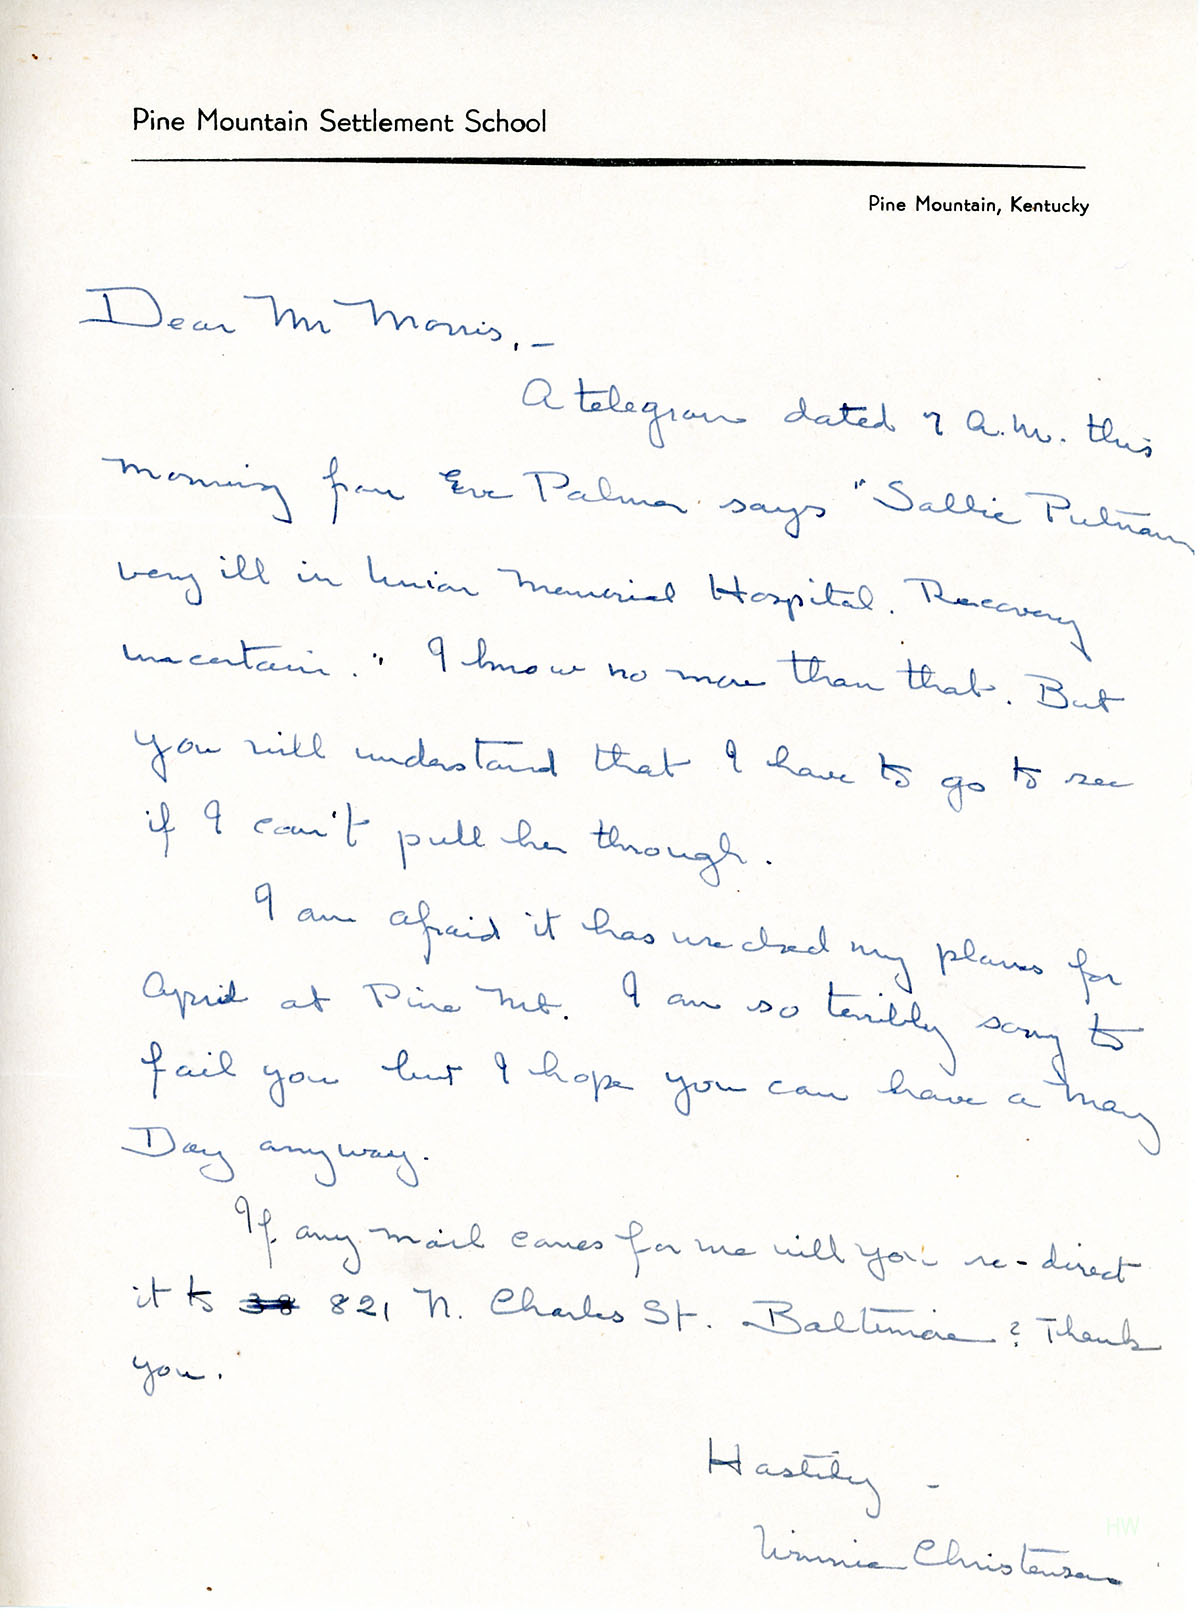 Pine Mountain Settlement School
Pine Mountain, Kentucky
Dear Mr Morris, –
A telegram dated 7 A.M. this
morning from Eve Palmer says "Sallie Putnam
very ill in Union Memorial Hospital. Recovery
uncertain." I know no more than that. But
you will understand that I have to go to see
if I can't pull her through.
I am afraid it has wrecked my plans for
April at Pine Mt. I am so terribly sorry to
fail you but I hope you can have a May
Day anyway.
If any mail comes for me will you re-direct
it to 38 821 N. Charles St. Baltimore? Thank
you.
Hastily –
Winnie Christensen
HW